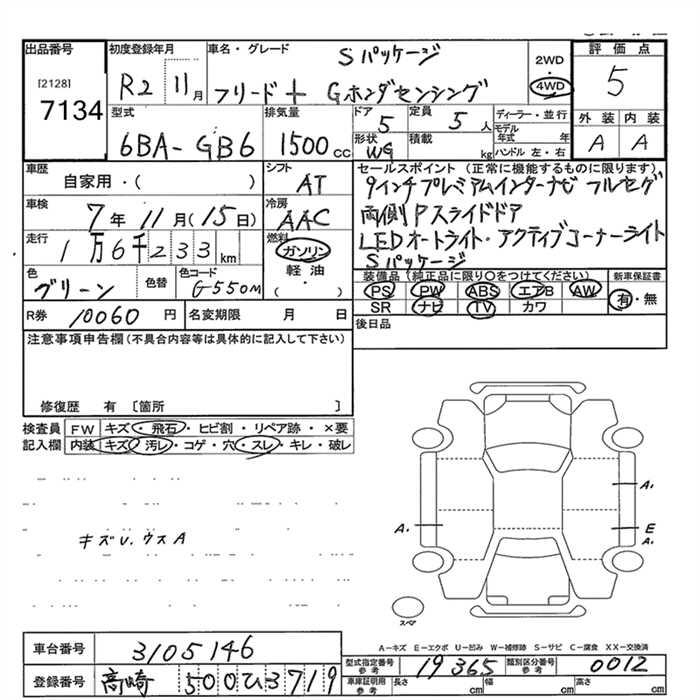 出品番号
[2128]
7134
初度登録年月
R2 11月
車名・グレード
Sパッケージ
フリード + Gホンダセンシング
2WD
・
4WD
評価点
5
外装 内装
A A
型式
6BA-GB6
排気量
1500cc
ドア
5
定員
5人
形状
WG
積載
kg
ディーラー・並行
モデル年式 年
ハンドル 左・右
車歴
自家用・( )
シフト
AT
車検
7年11月(15日)
冷房
AAC
走行
1万6千233km
燃料
ガソリン
・
軽油
・
( )
色
グリーン
色替
色コード
G-550M
セールスポイント(正常に機能するものに限ります)
9インチプレミアムインターナビ フルセグ
両側Pスライドドア
LEDオートライト・アクティブコーナーライト
Sパッケージ
装備品(純正品に限り○をつけてください)
PS PW ABS エアB AW
SR ナビ TV カワ
新車保証書
有・無
R券 10060円
名変期限 月 日
後日品
注意事項申告欄(不具合内容等は具体的に記入して下さい)
修復歴 有 〔箇所 〕
検査員記入欄
FW キズ・飛石・ヒビ割・リペア跡・×要
内装 キズ・汚レ・コゲ・穴・スレ・キレ・破レ
キズU.ウスA
A1
A1
E
A1
スペア
A-キズ E-エクボ U-凹み W-補修跡 S-サビ C-腐食 XX-交換済
車台番号 3105146
登録番号 高崎 500ひ3719
型式指定番号参考 19365
類別区分番号参考 0012
車庫証明用参考 長さ cm 幅 cm 高さ cm